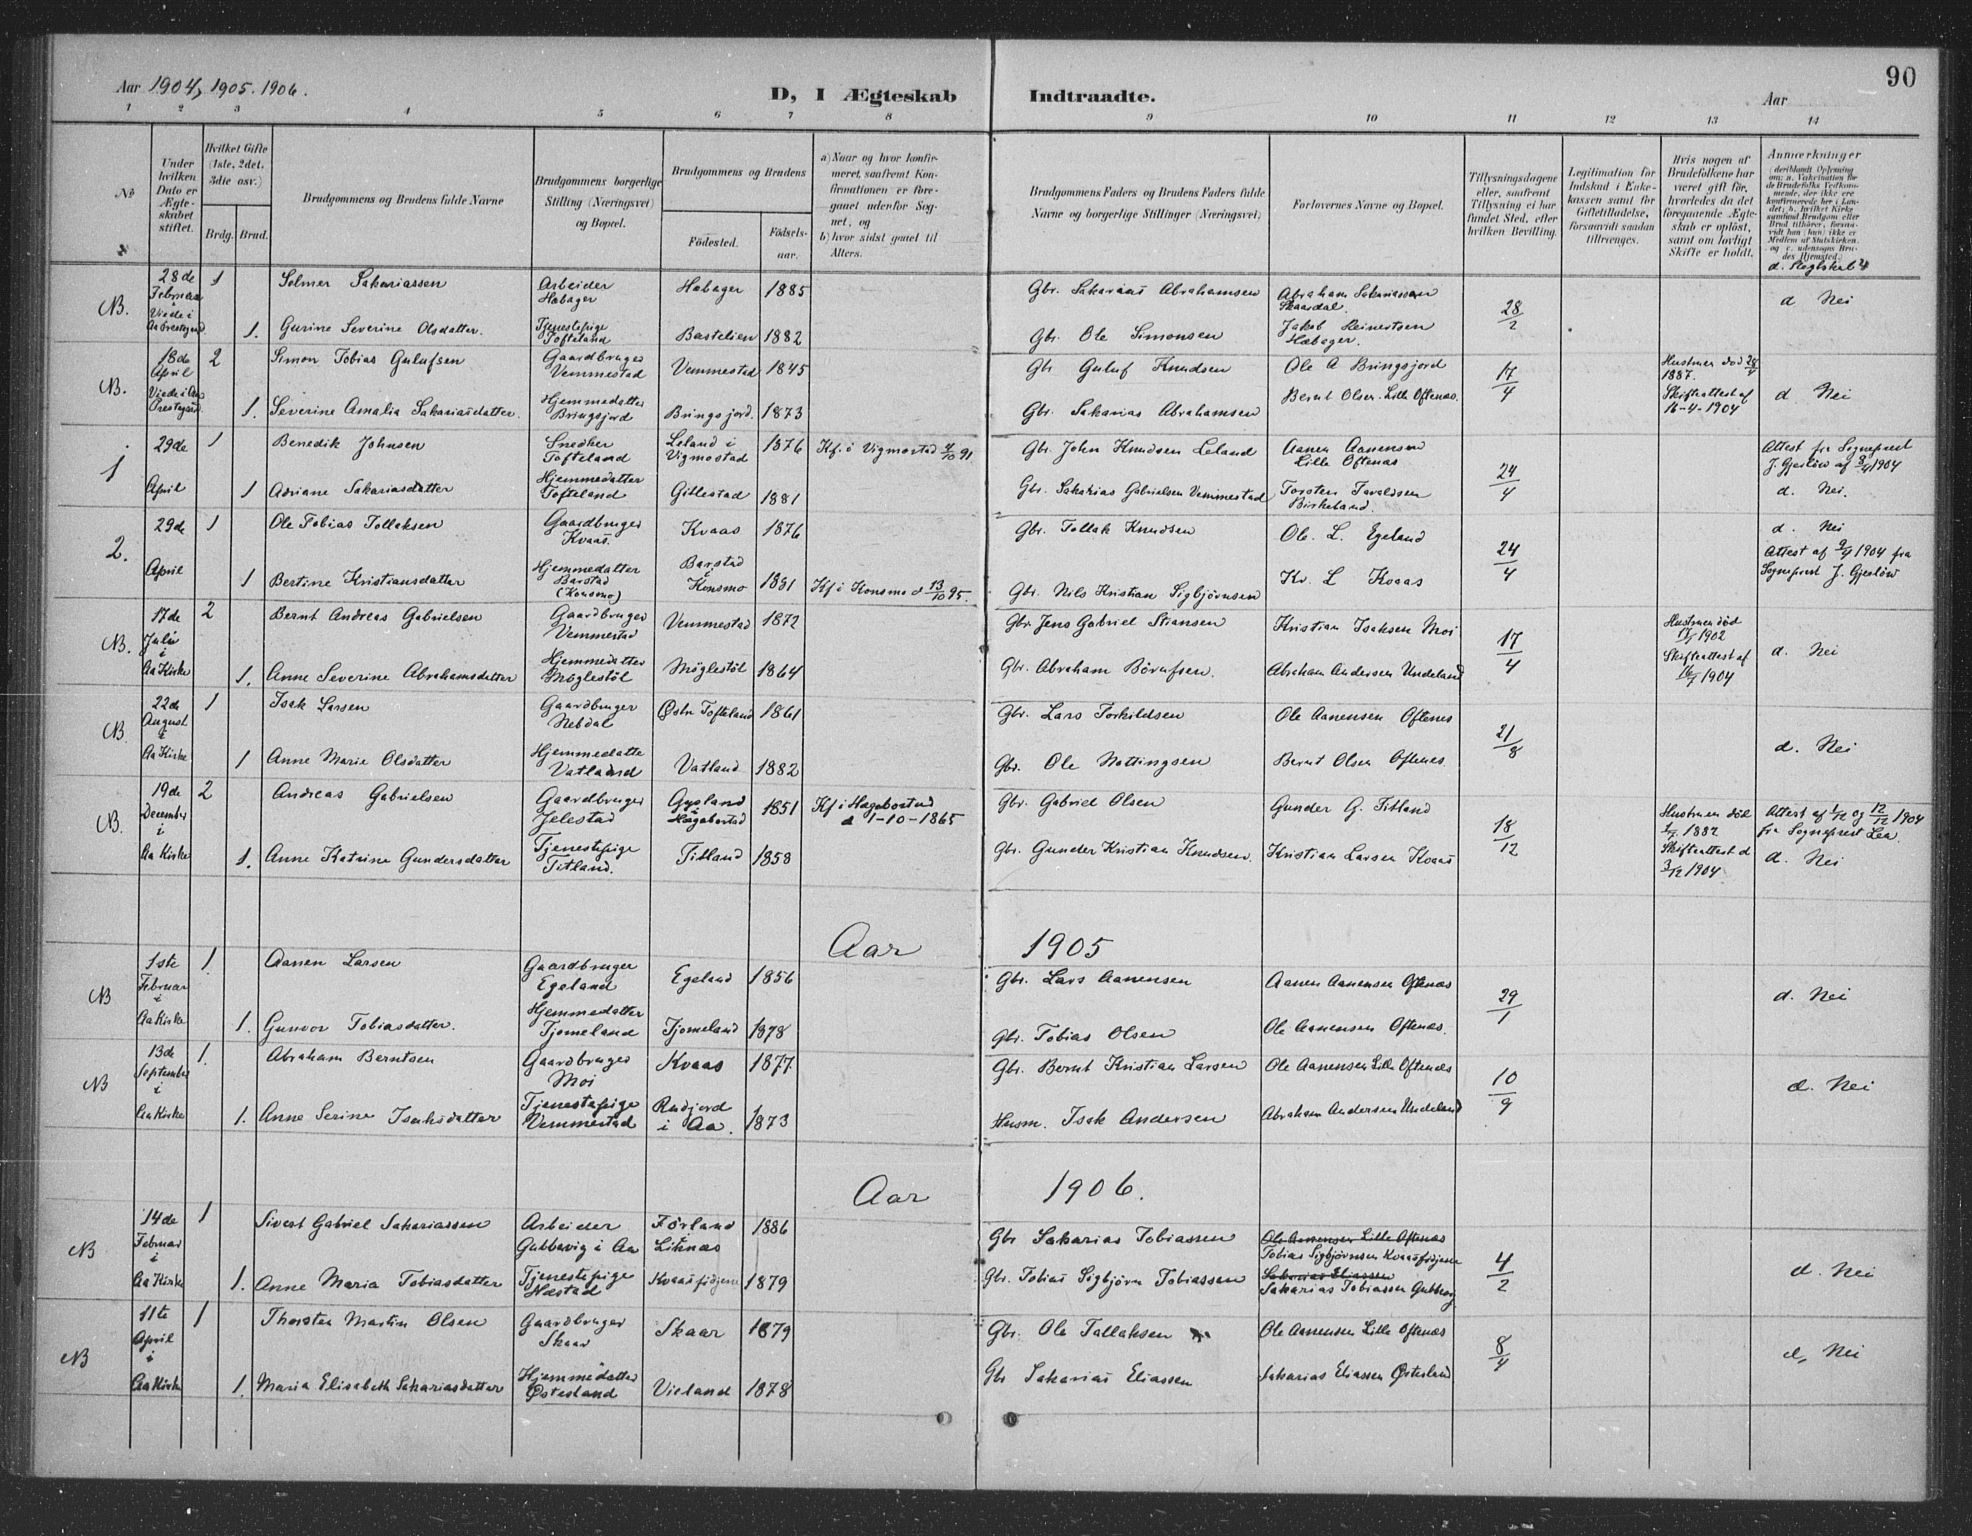 Aar 1904, 1905. 1906.
D, I Ægteskab Indtraadte.
Aar
90
1 2 3 4 5 6 7 8 9 10 11 12 13 14
No
Under hvilken Dato er Ægteskabet stiftet.
Hvilket Gifte (1ste, 2det, 3die osv.)
Brdg. Brud.
Brudgommens og Brudens fulde Navne
Brudgommens borgerlige Stilling (Næringsvei) og Bopæl.
Brudgommens og Brudens
Fødested.
Fødselsaar.
a) Naar og hvor konfirmeret, saafremt Konfirmationen er foregaaet udenfor Sognet, og
b) hvor sidst gaaet til Alters.
Brudgommens Faders og Brudens Faders fulde Navne og borgerlige Stillinger (Næringsvei)
Forlovernes Navne og Bopæl.
Tillysningsdagene eller, saafremt Tillysning ei har fundet Sted, efter hvilken Bevilling.
Legitimation for Indskud i Enkekassen samt for Giftetilladelse, forsaavidt saadan tiltrænges.
Hvis nogen af Brudefolkene har været gift før, hvorledes da det foregaaende Ægteskab er opløst, samt om lovligt Skifte er holdt.
Anmærkninger
(deriblandt Oplysning om: a. Vaksination for de Brudefolks Vedkommende, der ikke ere konfirmerede her i Landet; b. hvilket Kirkesamfund Brudgom eller Brud tilhører, forsaavidt han (hun) ikke er Medlem af Statskirken, og c. udensogns Brudes Hjemsted.)
d. Slegtskab?
NB. 28de Februar Viede i Aa Præstegaard 1 Selmer Sakariassen Arbeider Høbager Høbager 1885 Gbr. Sakarias Abrahamsen Abraham Sakariassen Skaardal. 28/2 d Nei
1. Gurine Severine Olsdatter. Tjenestepige Tofteland Bastelien 1882 Gbr. Ole Simonsen Jakob Reinertsen Høbager.
NB. 18de April Viede i Aa Præstegrd. 2 Simon Tobias Gulufsen Gaardbruger Vemmestad Vemmestad 1845 Gbr Guluf Knudsen Ole A Bringsjord 17/4 Hustruen død 1887. Skifteattest af 16-4-1904 d Nei
1. Severine Amalia Sakariasdatter. Hjemmedatter Bringsjord Bringsjord. 1873 Gbr. Sakarias Abrahamsen Bernt Olsen Lille Oftenæs.
1 29de April 1 Benedik Johnsen Snedker Tofteland Leland i Vigmostad 1876 Kf. i Vigmostad 4/10 91. Gbr. John Knudsen Leland Aanen Aanensen Lille Oftenæs 24/4 Attest fra Sogneprest J. Gjerløw af 3/4 1904 d. Nei.
1 Adriane Sakariasdatter Hjemmedatter Tofteland Gillestad 1881 Gbr. Sakarias Gabrielsen Vemmestad Torsten Tavaldsen Birkeland.
2. 29de April 1 Ole Tobias Tollaksen Gaardbruger Kvaas. Kvaas 1876 Gbr. Tollak Knudsen Ole. L. Egeland 24/4 d. Nei Attest af 9/4 1904 fra Sogneprest J. Gjerløw
1 Bertine Kristiansdatter Hjemmedatter Barstad (Konsmo) Barstad i Konsmo 1881 Kf i Konsmo d 13/10 95. Gbr. Nils Kristian Sigbjørnsen Kr. L Kvaas
NB. 17de Juli i Aa Kirke 2 Bernt Andreas Gabrielsen Gaardbruger Vemmestad Vemmestad 1872 Gbr. Jens Gabriel Stiansen Kristian Isaksen Moi 17/4 Hustruen død 1902 Skifteattest af 16/7 1904 d. Nei
1. Anne Severine Abrahamsdatter Hjemmedatter Møglestøl Møglestøl 1864 Gbr. Abraham Børufsen. Abraham Andersen Undeland
NB 22de August i Aa Kirke 1 Isak Larsen Gaardbruger Nebdal Østre Tofteland 1861 Gbr. Lars Torkildsen Ole Aanensen Oftenes 21/8 d. Nei
1 Anne Marie Olsdatter Hjemmedatte Vatland Vatland 1882 Gbr. Ole Nottingsen Bernt Olsen Oftenes
NB. 19de December i Aa Kirke 2 Andreas Gabrielsen Gaardbruger Jelestad Gysland i Hægebostad 1851 Kf i Hægebostad d 1-10-1865 Gbr. Gabriel Olsen Gunder G. Titland 18/12 Hustruen død 1882 Skifteattest d 3/12 1904 Attest af 1/12 og 12/12 1904 fra Sogneprest Lea. d. Nei
1. Anne Katrine Gundersdatter Tjenestepige Titland. Titland 1858 Gbr. Gunder Kristian Knudsen. Kristian Larsen Kvaas
Aar 1905
NB 1ste Februar i Aa Kirke 1. Aanen Larsen Gaardbruger Egeland Egeland 1856 Gbr. Lars Aanensen Aanen Aanensen Oftenæs 29/1 d. Nei
1. Gunvor Tobiasdatter. Hjemmedatter Tjomeland Tjomeland 1878 Gbr. Tobias Olsen Ole Aanensen Oftenæs.
NB 13de September i Aa Kirke 1. Abraham Berntsen Gaardbruger Moi Kvaas 1877. Gbr. Bernt Kristian Larsen Ole Aanensen Lille Oftenæs 10/9 d. Nei
1. Anne Serine Isaksdatter Tjenestepige Vemmestad Rudjord i Aa. 1873 Husm. Isak Andersen Abraham Andersen Undeland
Aar 1906.
NB 14de Februar i Aa Kirke 1 Sivert Gabriel Sakariassen Arbeider Gubbavig i Aa Førland Liknæs 1886 Gbr Sakarias Tobiassen Ole Aanensen Lille Oftenæs Tobias Sigbjørnsen Kvaasfidjene 4/2 d. Nei
1. Anne Maria Tobiasdatter Tjenestepige Næstad Kvaasfidjene 1879 Gbr. Tobias Sigbjørn Tobiassen Sakarias Eliassen Sakarias Tobiassen
NB 11te April i Aa Kirke 1 Thorsten Martin Olsen Gaardbruger Skaar Skaar 1879 Gbr. Ole Tallaksen Ole Aanensen Lille Oftenæs 8/4 d, Nei
1. Maria Elisabeth Sakariasdatter Hjemmedatter Østesland Vieland 1878 Gbr Sakarias Eliassen Sakarias Eliassen